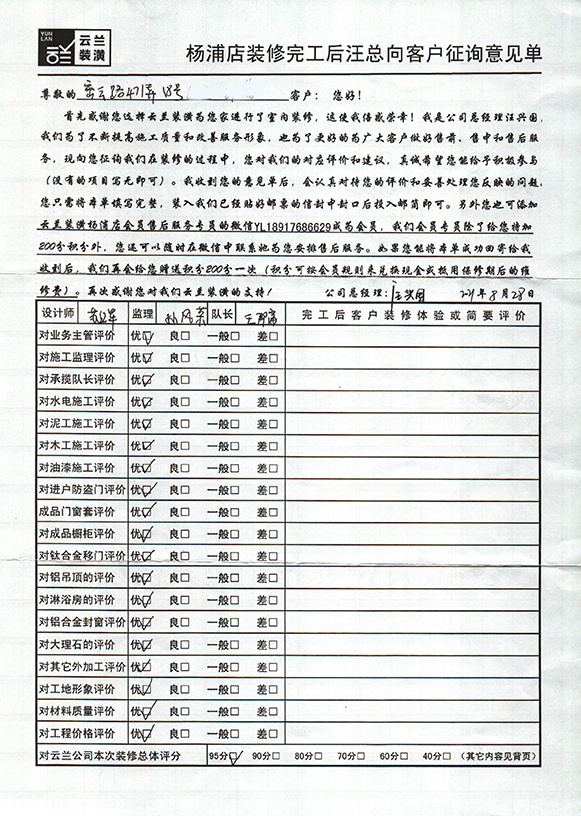 YUN LAN 云兰装潢
杨浦店装修完工后汪总向客户征询意见单
尊敬的 密云路471弄18号 客户： 您好！
首先感谢您选择云兰装潢为您家进行了室内装修，这使我倍感荣幸！我是公司总经理汪兴国，
我们为了不断提高施工质量和改善服务形象，也为了更好的为广大客户做好售前、售中和售后服
务，现向您征询我们在装修的过程中，您对我们的对应评价和建议，真诚希望您能给予积极参与
（没有的项目写无即可）。我收到您的意见单后，会认真对待您的评价和妥善处理您反映的问题，
您只需将本单填写完整，装入我们已经贴好邮票的信封中封口后投入邮筒即可。另外您也可添加
云兰装潢杨浦店会员售后服务专员的微信YL18917686629成为会员，我们会员专员除了给您特加
200分积分外，您还可以随时在微信中联系她为您安排售后服务。如果您能将本单成功回寄给我
收到后，我们再会给您赠送积分200分一次（积分可按会员规则来兑换现金或抵用保修期后的维
修费）。再次感谢您对我们云兰装潢的支持！ 公司总经理：汪兴国 2021年8月28日
设计师 监理 孙凤亲 队长 完工后客户装修体验或简要评价
对业务主管评价 优☑ 良□ 一般□ 差□
对施工监理评价 优☑ 良□ 一般□ 差□
对承揽队长评价 优☑ 良□ 一般□ 差□
对水电施工评价 优☑ 良□ 一般□ 差□
对泥工施工评价 优☑ 良□ 一般□ 差□
对木工施工评价 优☑ 良□ 一般□ 差□
对油漆施工评价 优☑ 良□ 一般□ 差□
对进户防盗门评价 优☑ 良□ 一般□ 差□
成品门窗套评价 优☑ 良□ 一般□ 差□
对成品橱柜评价 优☑ 良□ 一般□ 差□
对钛合金移门评价 优☑ 良□ 一般□ 差□
对铝吊顶的评价 优☑ 良□ 一般□ 差□
对淋浴房的评价 优☑ 良□ 一般□ 差□
对铝合金封窗评价 优☑ 良□ 一般□ 差□
对大理石的评价 优☑ 良□ 一般□ 差□
对其它外加工评价 优☑ 良□ 一般□ 差□
对工地形象评价 优☑ 良□ 一般□ 差□
对材料质量评价 优☑ 良□ 一般□ 差□
对工程价格评价 优☑ 良□ 一般□ 差□
对云兰公司本次装修总体评分 95分☑ 90分□ 80分□ 70分□ 60分□ 40分□ （其它内容见背页）